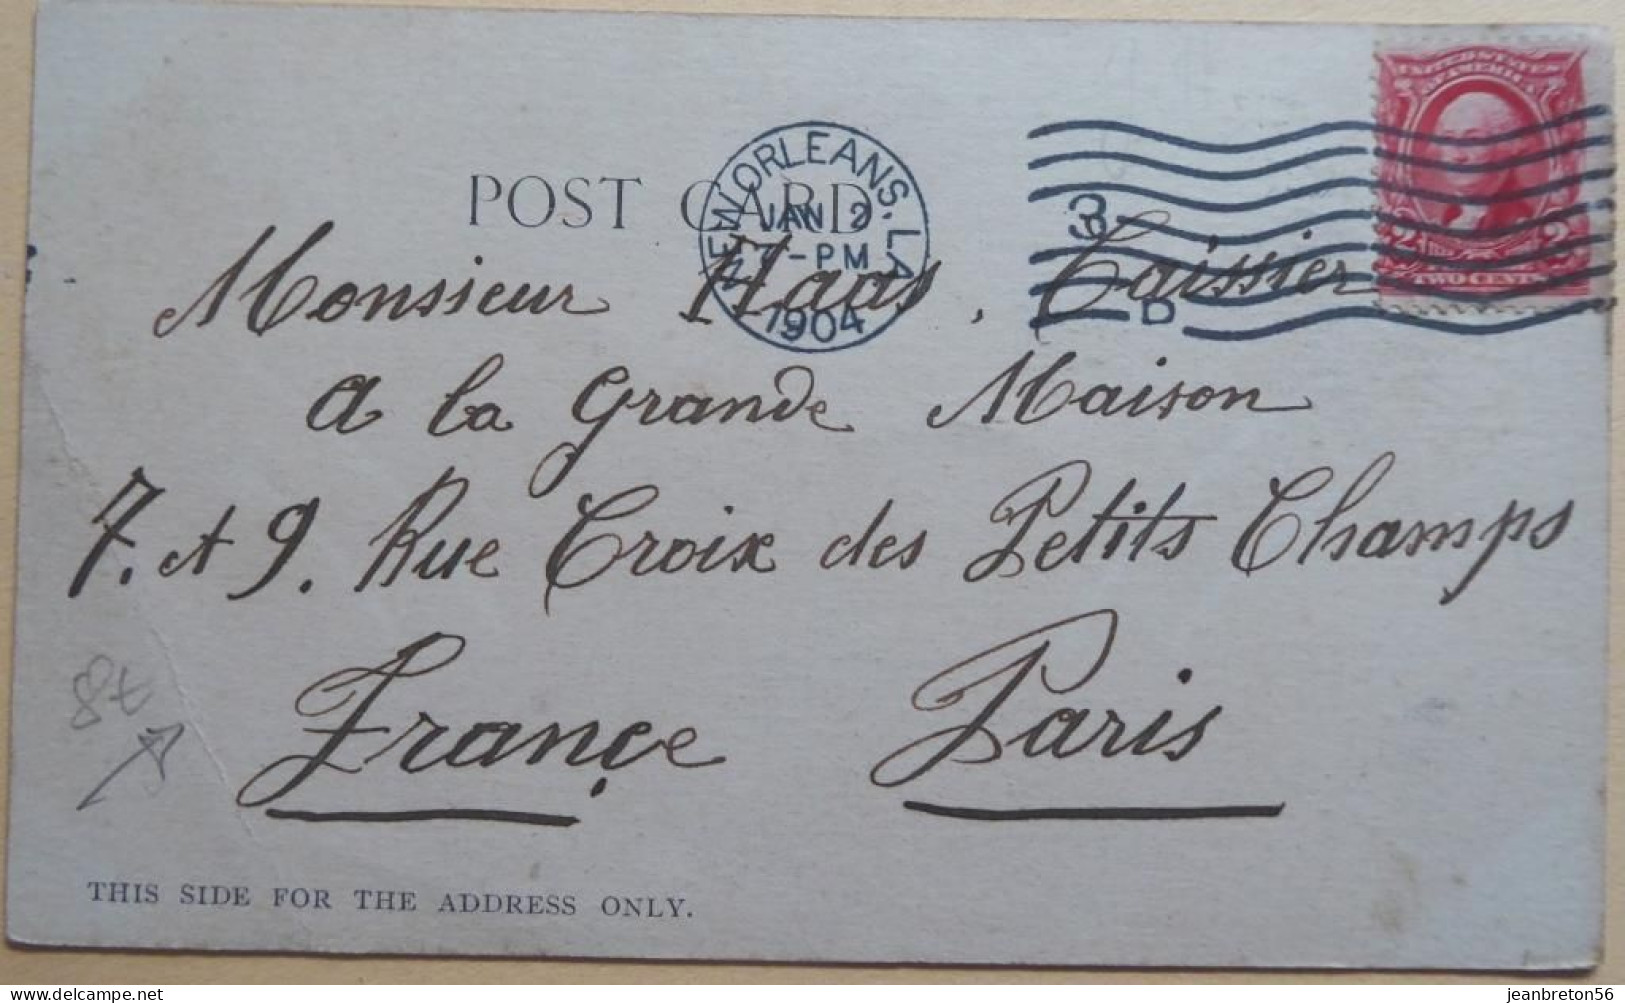 UNITED STATES
OF AMERICA
2 2
TWO CENTS
NEW ORLEANS, LA.
JAN 2
7-PM
1904
3
D
POST CARD
Monsieur Haas, Caissier
a la Grande Maison
7. et 9. Rue Croix des Petits Champs
France Paris
8t
THIS SIDE FOR THE ADDRESS ONLY.
jeanbreton56
delcampe.net